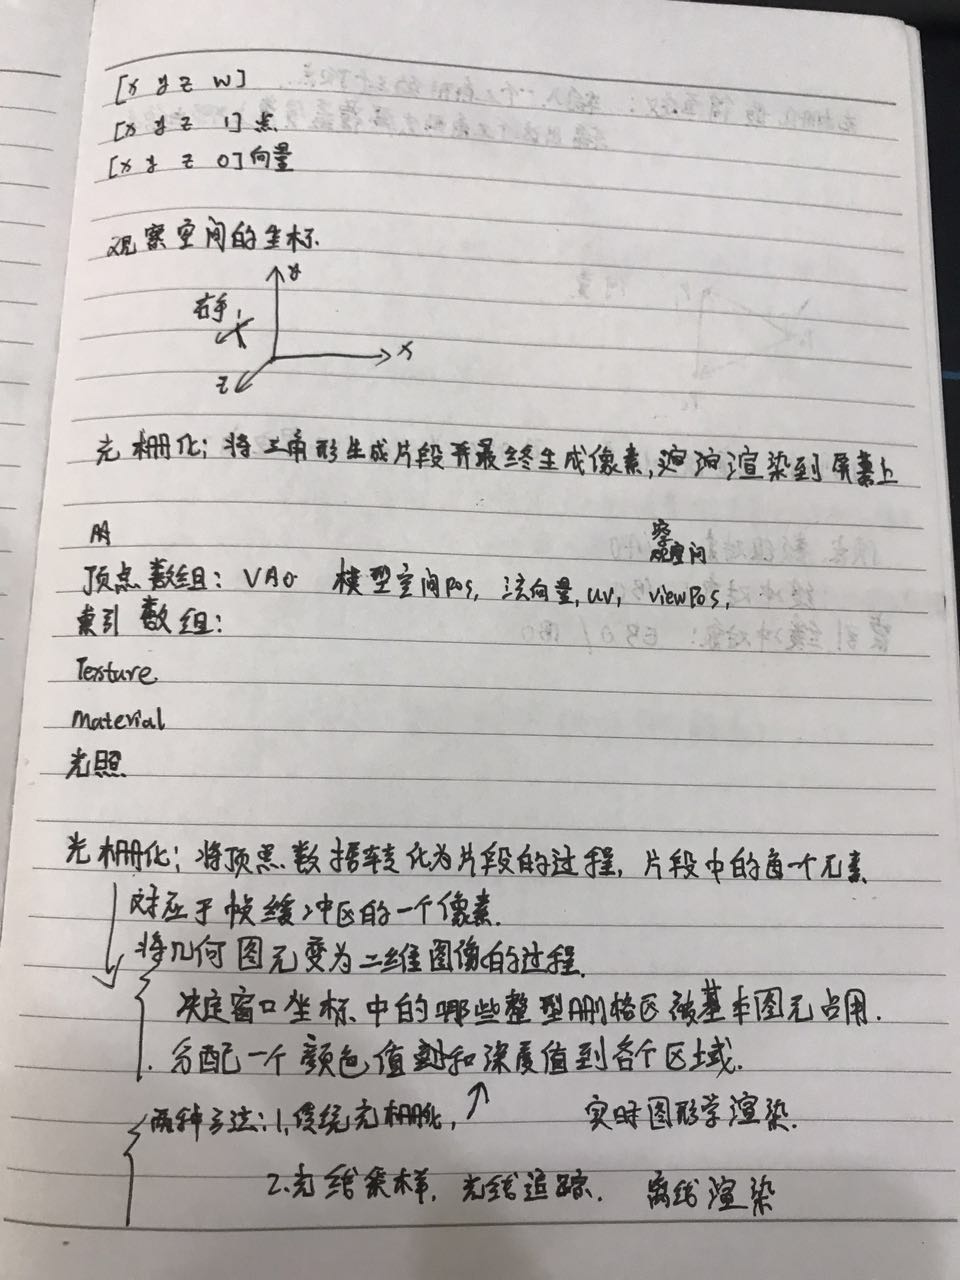 [x y z w]
[x y z 1] 点
[x y z 0] 向量
观察空间的坐标.
y
右手
x
z
光栅化: 将三角形生成片段并最终生成像素, 渲染到屏幕上
察
观空间
顶点数组: VAO 模型空间pos, 法向量, uv, viewPos,
索引数组:
Texture
Material
光照
光栅化: 将顶点数据转化为片段的过程, 片段中的每一个元素
对应于帧缓冲区的一个像素.
将几何图元变为二维图像的过程.
决定窗口坐标中的哪些整型栅格区被基本图元占用.
. 分配一个颜色值和深度值到各个区域.
两种方法: 1. 传统光栅化, 实时图形学渲染.
2. 光线采样, 光线追踪. 离线渲染